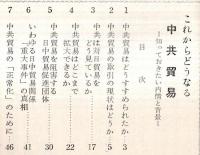 これからどうなる
中共貿易
―知っておきたい内情と背景―
目次
1 中共貿易はどうすすめられたか 3
2 中共貿易の取引の現状はどうか 5
3 中共は対日貿易を
どう見ているか 17
4 中共貿易はどこまで
拡大できるか 22
5 中共貿易を阻害する
日中貿易促進団体 30
6 いわゆる日中貿易関係
「重大事件」の真相 41
7 中共貿易の「正常化」のために 46